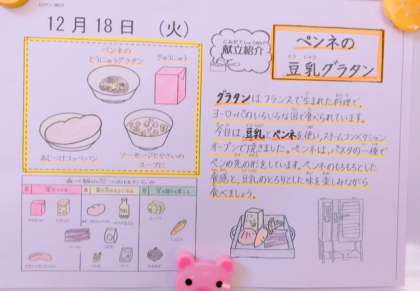 12月18日 (火)
ペンネの
とうにゅうグラタン
ぎゅうにゅう
あじつけコッペパン
ソーセージとやさいの
スープに
献立紹介
ペンネの
豆乳グラタン
グラタンはフランスで生まれた料理で、
ヨーロッパのいろいろな国で食べられています。
今日は豆乳とペンネを使い、スチームコンベクション
オーブンで焼きました。ペンネはパスタの一種で
ペンの先の形をしています。ペンネのもちもちした
食感と、豆乳のとろりとした味を楽しみながら
食べましょう。